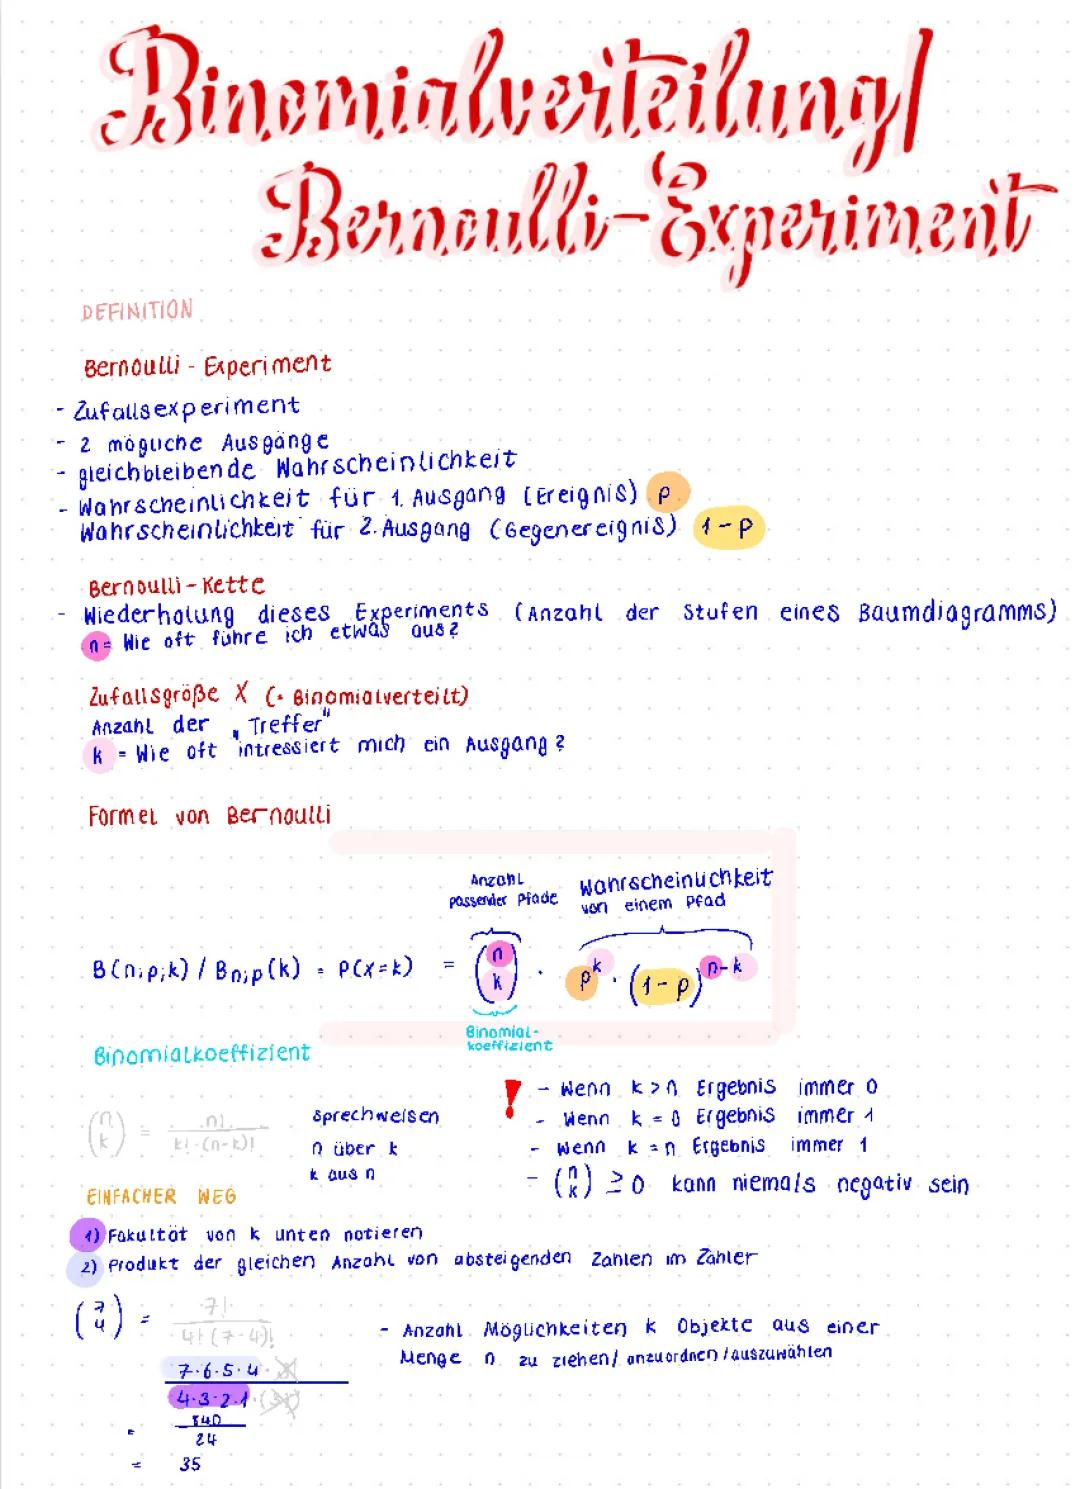 Binomialverteilung/
Bernoulli-Experiment
DEFINITION
Bernoulli - Experiment
- Zufallsexperiment
- 2 mögliche Ausgänge
- gleichbleibende Wahrscheinlichkeit
- Wahrscheinlichkeit für 1. Ausgang (Ereignis) p
Wahrscheinlichkeit für 2. Ausgang (Gegenereignis) 1-p
Bernoulli-Kette
- Wiederholung dieses Experiments (Anzahl der Stufen eines Baumdiagramms)
n = Wie oft führe ich etwas aus?
Zufallsgröße X (· Binomialverteilt)
Anzahl der „Treffer"
k = Wie oft intressiert mich ein Ausgang?
Formel von Bernoulli
Anzahl passender Pfade
Wahrscheinlichkeit von einem Pfad
B(n;p;k) / Bn;p(k) = P(X=k) = (n k) · p^k · (1-p)^n-k
Binomial-
koeffizient
Binomialkoeffizient
(n k) = n! / k!·(n-k)!
Sprechweisen
n über k
k aus n
! - Wenn k > n Ergebnis immer 0
- Wenn k = 0 Ergebnis immer 1
- Wenn k = n Ergebnis immer 1
- (n k) ≥ 0 kann niemals negativ sein
EINFACHER WEG
1) Fakultät von k unten notieren
2) Produkt der gleichen Anzahl von absteigenden Zahlen im Zähler
(7 4) = 7! / 4!(7-4)!
7·6·5·4·3!
4·3·2·1·(3!)
= 840 / 24
= 35
- Anzahl Möglichkeiten k Objekte aus einer
Menge n zu ziehen/ anzuordnen /auszuwählen